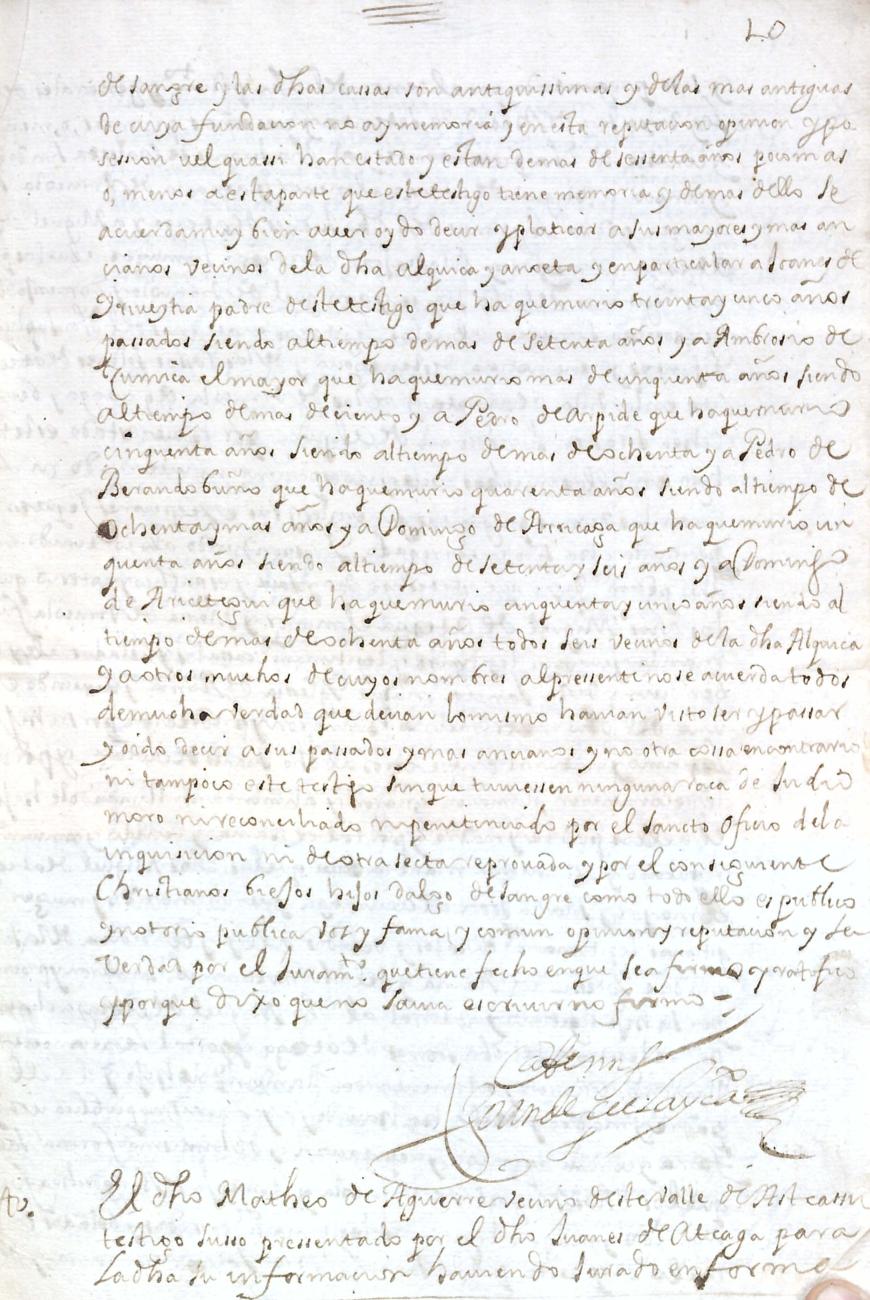 20
de sangre y las dhas cassas son antiquissimas y delas mas antiguas
de cuya fundacion no ay memoria y en esta reputacion opinion y po
session vel quassi han estado y estan demas de sessenta años poco mas
o, menos a esta parte que este testigo tiene memoria y demas dello se
acuerda muy bien aver oydo decir y platicar a sus mayores y mas an
cianos vecinos dela dha Alquica y anoeta y en particular a Joanes de
Yriveytia padre deste testigo que ha que murio treinta y cinco años
passados siendo al tiempo de mas de setenta años y a Ambrosio de
el mayor que ha que murio mas de cinquenta años siendo
al tiempo de mas de ciento y a Pedro de Arpide que ha que murio
cinquenta años siendo al tiempo de mas de ochenta y a Pedro de
Berandobuño que ha que murio quarenta años siendo al tiempo de
ochenta y mas años y a Domingo de Arricaga que ha que murio cin
quenta años siendo al tiempo de setenta y seis años y a Domingo
de Aricetegui que ha que murio cinquenta y cinco años siendo al
tiempo de mas de ochenta años todos seis vecinos de la dha Alquica
y a otros muchos de cuyos nombres al pressente no se acuerda todos
de mucha verdad que decian lo mismo havian visto ser y passar
y oido decir a sus passados y mas ancianos y no otra cossa en contrario
ni tampoco este testigo sin que tuviessen ninguna raca de Judio
moro ni reconciliado ni penitenciado por el sancto Oficio dela
inquisicion ni de otra secta reprovada y por el consiguiente
Christianos biejos hijos dalgo de sangre como todo ello es publico
y notorio publica voz y fama, y comun opinion y reputacion y la
Verdad por el Juramto. que tiene fecho en que se afirmo y ratifico
y porque dixo que no savia escrivir no firmo =
El dho Matheo de Aguerre vecino deste valle de Asteassu
testigo susso pressentado por el dho Juanes de Ateaga para
la dha su informacion haviendo Jurado en forma